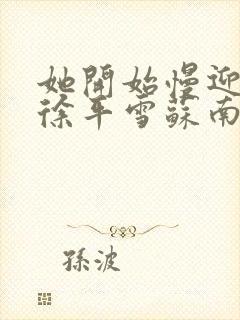 她開始慢迎
徐平雪蘇南
孫波